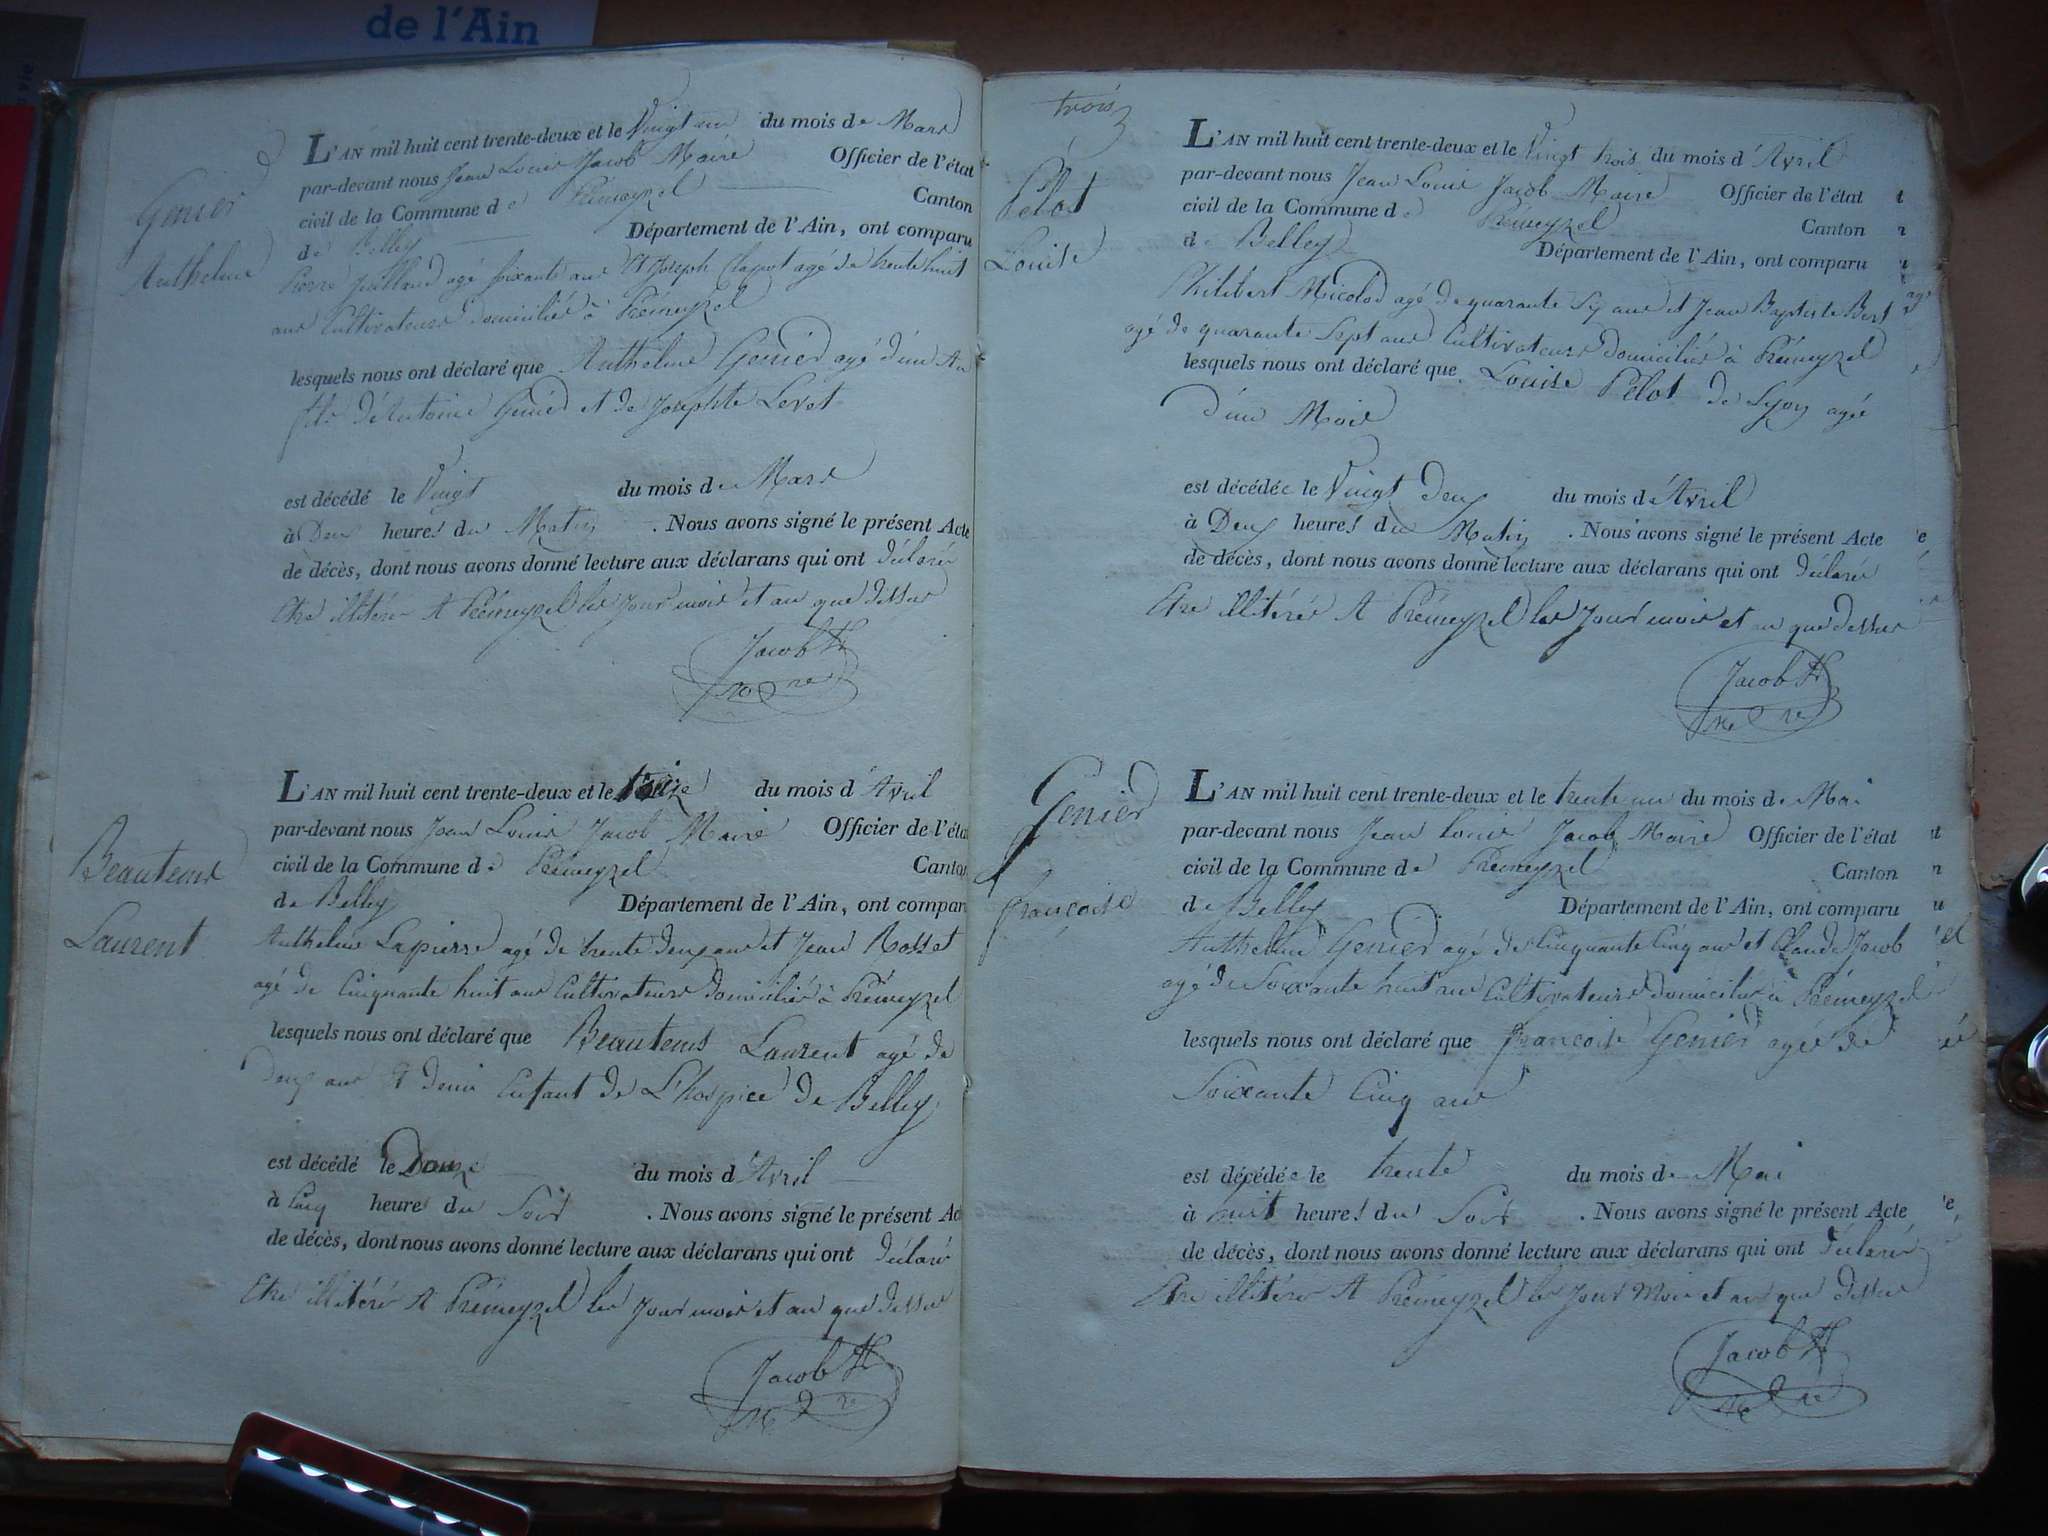 de l'Ain
Genier
Anthelme
L'AN mil huit cent trente-deux et le Vingt un du mois de Mars
par-devant nous Jean Louis Jacob Maire Officier de l'état
civil de la Commune de Prémeyzel Canton
de Belley Département de l'Ain, ont comparu
Pierre Juilland agé soixante ans Et Joseph Clapot agé de trente huit
ans Cultivateurs domiciliés à Prémeyzel
lesquels nous ont déclaré que Anthelme Genier agé d'un An
fils d'Antoine Genier et de Josephte Levet
est décédé le Vingt du mois de Mars
à Deux heures du Matin . Nous avons signé le présent Acte
de décès, dont nous avons donné lecture aux déclarans qui ont déclaré
Etre illitéré A Prémeyzel les jour mois et an que dessus
Jacob
Beautems
Laurent
L'AN mil huit cent trente-deux et le treize du mois d'Avril
par-devant nous Jean Louis Jacob Maire Officier de l'état
civil de la Commune de Prémeyzel Canton
de Belley Département de l'Ain, ont comparu
Anthelme Lapierre agé de trente deux ans et Jean Rosset
agé de Cinquante huit ans Cultivateurs domiciliés à Prémeyzel
lesquels nous ont déclaré que Beautems Laurent agé de
Deux ans et demi Enfant de L'hospice de Belley
est décédé le Douze du mois d'Avril
à Cinq heures du Soir . Nous avons signé le présent Acte
de décès, dont nous avons donné lecture aux déclarans qui ont déclaré
Etre illitéré A Prémeyzel les jour mois et an que dessus
Jacob
trois
Pélot
Louise
L'AN mil huit cent trente-deux et le Vingt trois du mois d'Avril
par-devant nous Jean Louis Jacob Maire Officier de l'état
civil de la Commune de Prémeyzel Canton
de Belley Département de l'Ain, ont comparu
Philibert Micolod agé de quarante Six ans et Jean Baptiste Bert
agé de quarante Sept ans Cultivateurs domiciliés à Prémeyzel
lesquels nous ont déclaré que Louise Pélot de Lyon agée
d'un Mois
est décédée le Vingt Deux du mois d'Avril
à Deux heures du Matin . Nous avons signé le présent Acte
de décès, dont nous avons donné lecture aux déclarans qui ont déclaré
Etre illitéré A Prémeyzel les jour mois et an que dessus
Jacob
Genier
françoise
L'AN mil huit cent trente-deux et le trente un du mois de Mai
par-devant nous Jean Louis Jacob Maire Officier de l'état
civil de la Commune de Prémeyzel Canton
de Belley Département de l'Ain, ont comparu
Anthelme Genier agé de Cinquante Cinq ans et Claude Jacob
agé de Soixante huit ans Cultivateurs Domiciliés à Prémeyzel
lesquels nous ont déclaré que françoise Genier agée de
Soixante Cinq ans
est décédée le trente du mois de Mai
à huit heures du Soir . Nous avons signé le présent Acte
de décès, dont nous avons donné lecture aux déclarans qui ont déclaré
Etre illitéré A Prémeyzel les jour Mois et an que dessus
Jacob